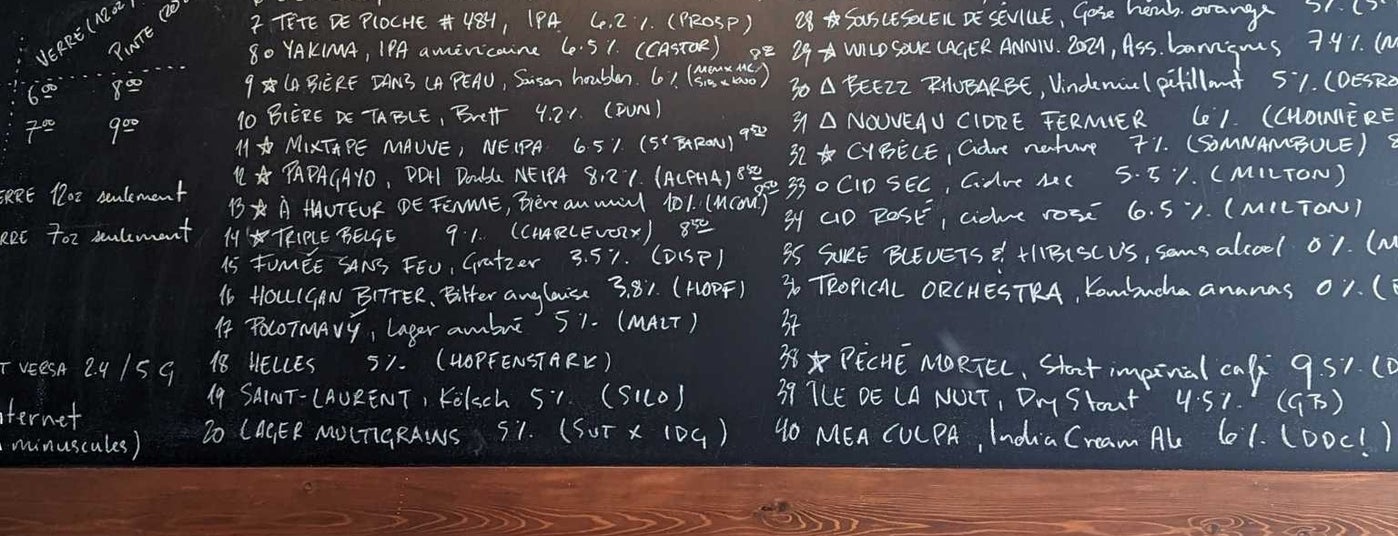 VERRE (12oz)
PINTE (20
6.00 8.00
7.00 9.00
ERRE 12oz seulement
RRE 7oz seulement
T VERSA 2.4 / 5 G
nternet
minuscules)
7 TÊTE DE PIOCHE # 484, IPA 6.2 %. (PROSP)
8 o YAKIMA, IPA américaine 6.5 %. (CASTOR)
9 ☆ LA BIÈRE DANS LA PEAU, Saison houblon. 6 %
10 BIÈRE DE TABLE, Brett 4.2 %. (DUN)
11 ☆ MIXTAPE MAUVE, NEIPA 6.5 % (5e BARON) 9.50
12 ☆ PAPAGAYO, DDH Double NEIPA 8.2 %. (ALPHA) 8.50
13 ☆ À HAUTEUR DE FEMME, Bière au miel 10 %. (MCOM)
14 ☆ TRIPLE BELGE 9 %. (CHARLEVOIX) 8.50
15 FUMÉE SANS FEU, Gratzer 3.5 %. (DISP)
16 HOLLIGAN BITTER, Bitter anglaise 3.8 %. (HOPF)
17 POLOTMAVÝ, Lager ambré 5 %. (MALT)
18 HELLES 5 %. (HOPFENSTARK)
19 SAINT-LAURENT, Kölsch 5 %. (SILO)
20 LAGER MULTIGRAINS 5 %. (SUT X IDG)
28 ☆ SOUS LE SOLEIL DE SÉVILLE, Gose héub. orange 5 %. (S
29 ☆ WILD SOUR LAGER ANNIV. 2021, Ass. barriques 7.4 %. (M
30 Δ BEEZZ RHUBARBE, Vindemiel pétillant 5 %. (DESRO
31 Δ NOUVEAU CIDRE FERMIER 6 %. (CHOINIÈRE
32 ☆ CYBÈLE, Cidre nature 7 %. (SOMNAMBULE)
33 o CID SEC, Cidre sec 5.5 %. (MILTON)
34 CID ROSÉ, cidre rosé 6.5 %. (MILTON)
35 SURE BLEUETS & HIBISCUS, sans alcool 0 %. (M
36 TROPICAL ORCHESTRA, Kombucha ananas 0 %. (
37
38 ☆ PÉCHÉ MORTEL, Stout impérial café 9.5 %. (D
39 ÎLE DE LA NUIT, Dry Stout 4.5 %. (GB)
40 MEA CULPA, India Cream Ale 6 %. (DDC!)